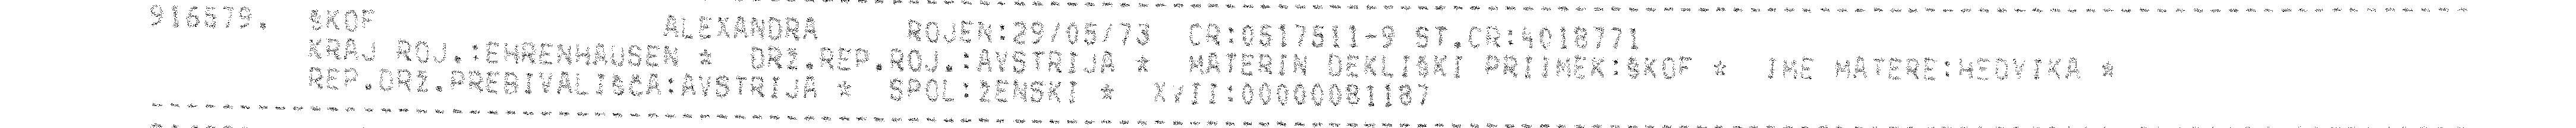 916579. ŠKOF ALEXANDRA ROJEN:29/05/73 CR:0517511-9 ST.CR:4018771
KRAJ ROJ.:EHRENHAUSEN * DRŽ.REP.ROJ.:AVSTRIJA * MATERIN DEKLIŠKI PRIIMEK:ŠKOF * IME MATERE:HEDVIKA *
REP.DRŽ.PREBIVALIŠČA:AVSTRIJA * SPOL:ŽENSKI * XVII:00000081187